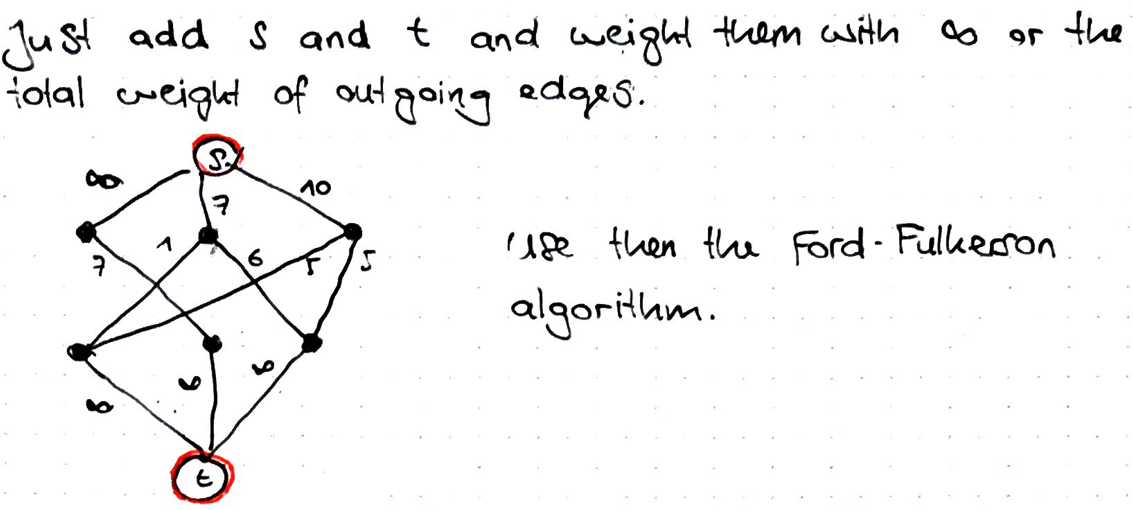 Just add s and t and weight them with ∞ or the
total weight of outgoing edges.
S
∞
7
10
7
1
6
5
5
use then the Ford-Fulkerson
algorithm.
∞
∞
∞
t